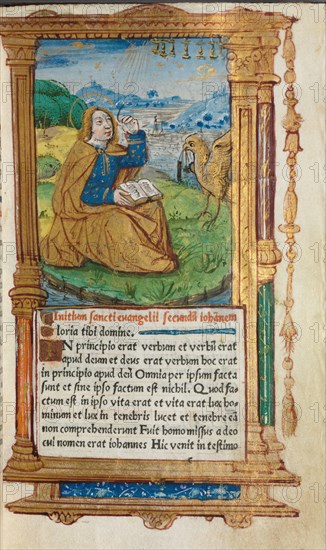 Initium sancti euangelii secundũ iohanem
loria tibi domine.
IN principio erat verbum et verbũ erat
apud deum et deus erat verbum hoc erat
in principio apud deũ Omnia per ipsum facta
sunt et sine ipso factum est nichil. Quod fa-
ctum est in ipso vita erat et vita erat lux ho-
minum et lux in tenebris lucet et tenebre eã
non comprehenderunt Fuit homo missus a deo
cui nomen erat iohannes Hic venit in testimo